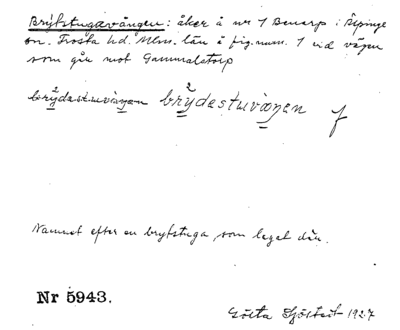 Brytstugavången: åker å nr 1 Benarp i Äspinge
sn. Frosta hd. Mlm. län å fig.num. 1 vid vägen
som går mot Gammalstorp
brýdestuvàŋen brýdestuvàŋen f
Namnet efter en brytstuga, som legat där.
Nr 5943.
Gösta Sjöstedt 1927